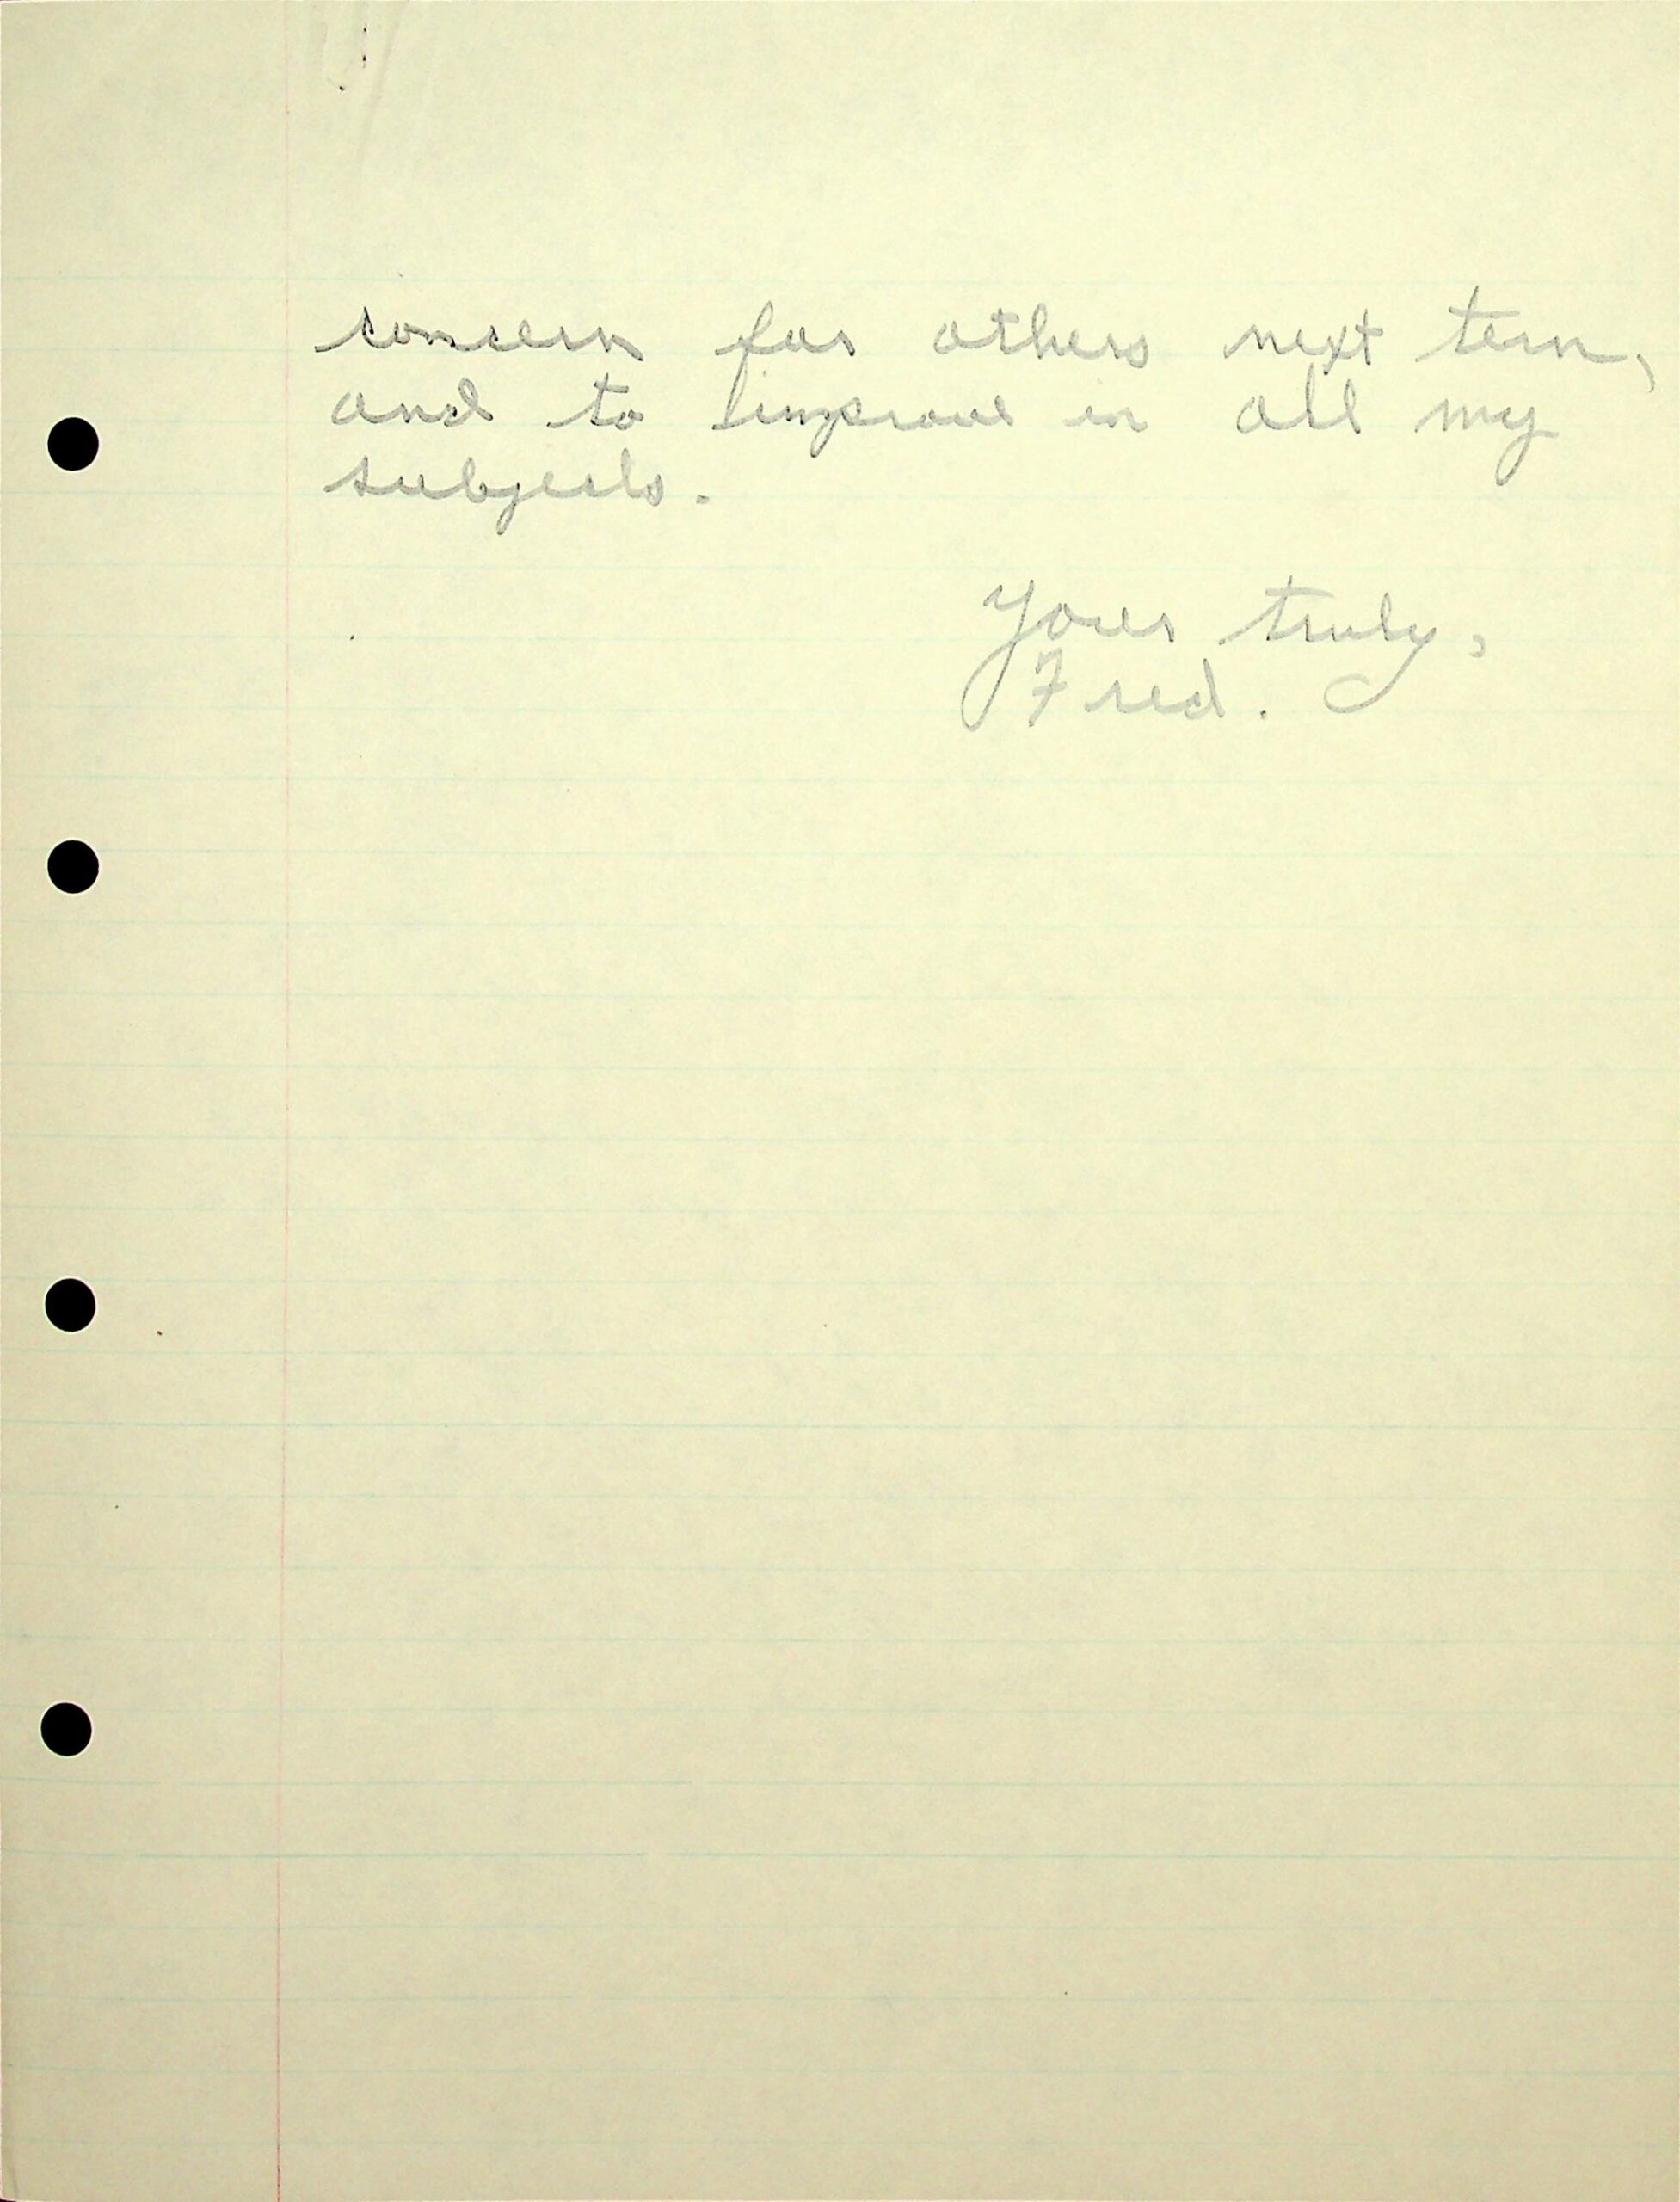 concern for others next term,
and to improve in all my
subjects.
Yours truly,
Fred.